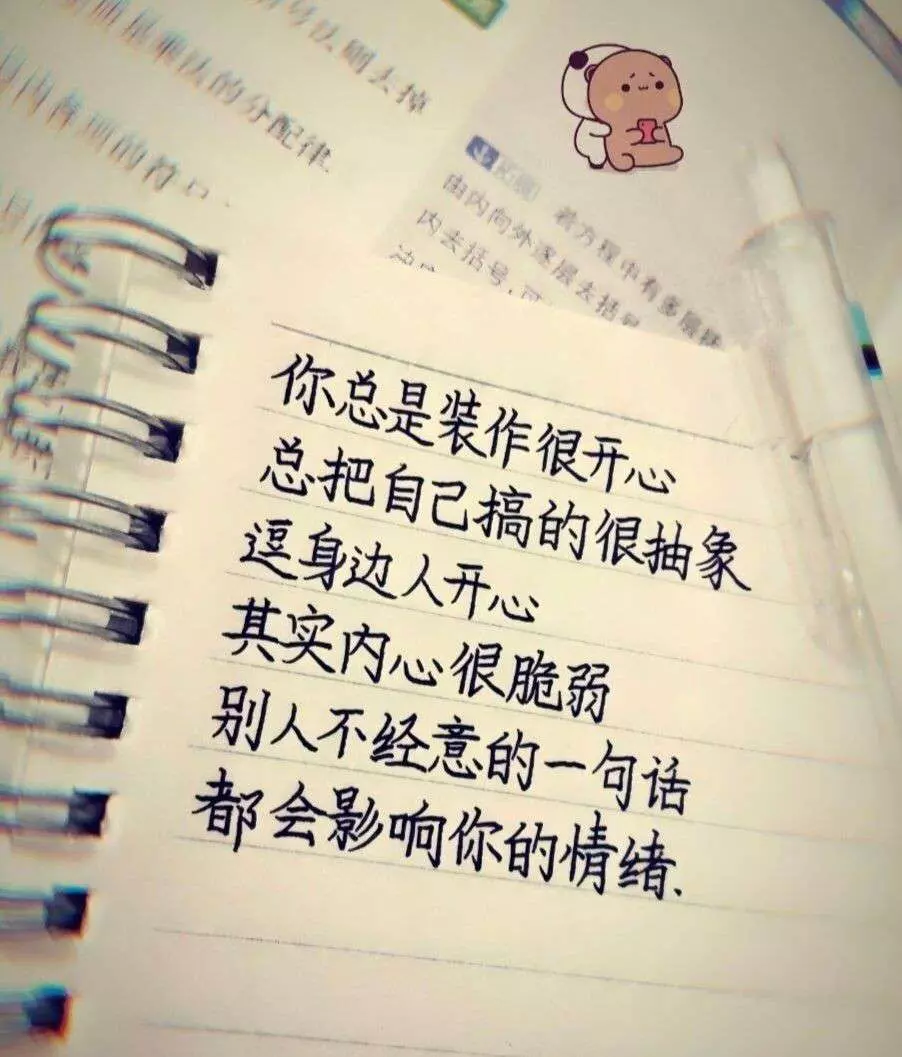 号法则去掉
是乘法的分配律.
若方程中有多层
由内向外逐层去括号
内去括号,可
你总是装作很开心
总把自己搞的很抽象
逗身边人开心
其实内心很脆弱
别人不经意的一句话
都会影响你的情绪.